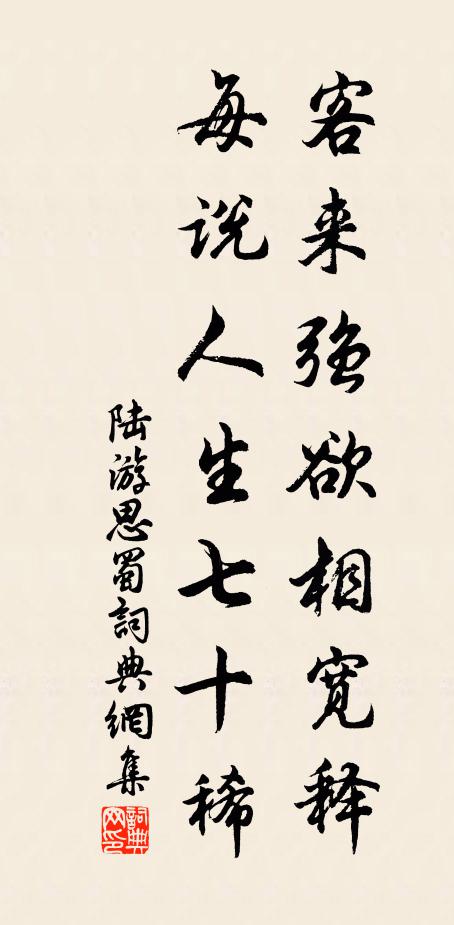 客来强欲相宽释
每说人生七十稀
陆游思蜀詞典網集
詞典网印